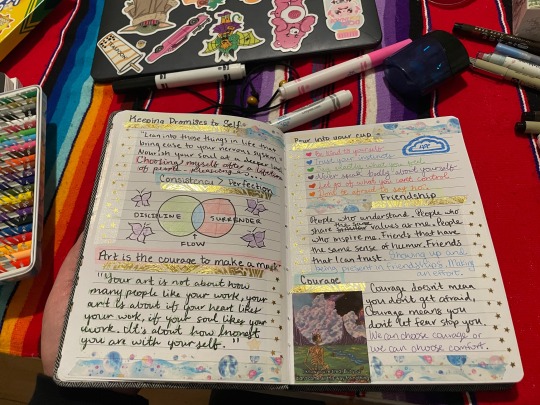 Keeping Promises to Self
"Lean into those things in life that
bring ease to your nervous system &
Nourish your soul at a deeper
Choosing myself after a lifetime
of people-pleasing
Consistency > Perfection
DISCIPLINE
SURRENDER
FLOW
Art is the courage to make a mark
"Your art is not about how
many people like your work, your
art is about if your heart likes
your work, if your soul likes your
work. It's about how honest
you are with yourself."
Pour into your cup
Be kind to yourself
Trust your instincts
Never speak badly about yourself
Let go of what you can't control
Don't be afraid to say no.
Friendship
People who understand. People who
share the same values as me. People
who inspire me. Friends that have
the same sense of humor. Friends
that I can trust. Showing up and
being present in friendships. Making
an effort.
Courage
Courage doesn't mean
you don't get afraid,
Courage means you
don't let fear stop you.
We can choose courage or
we can choose comfort.